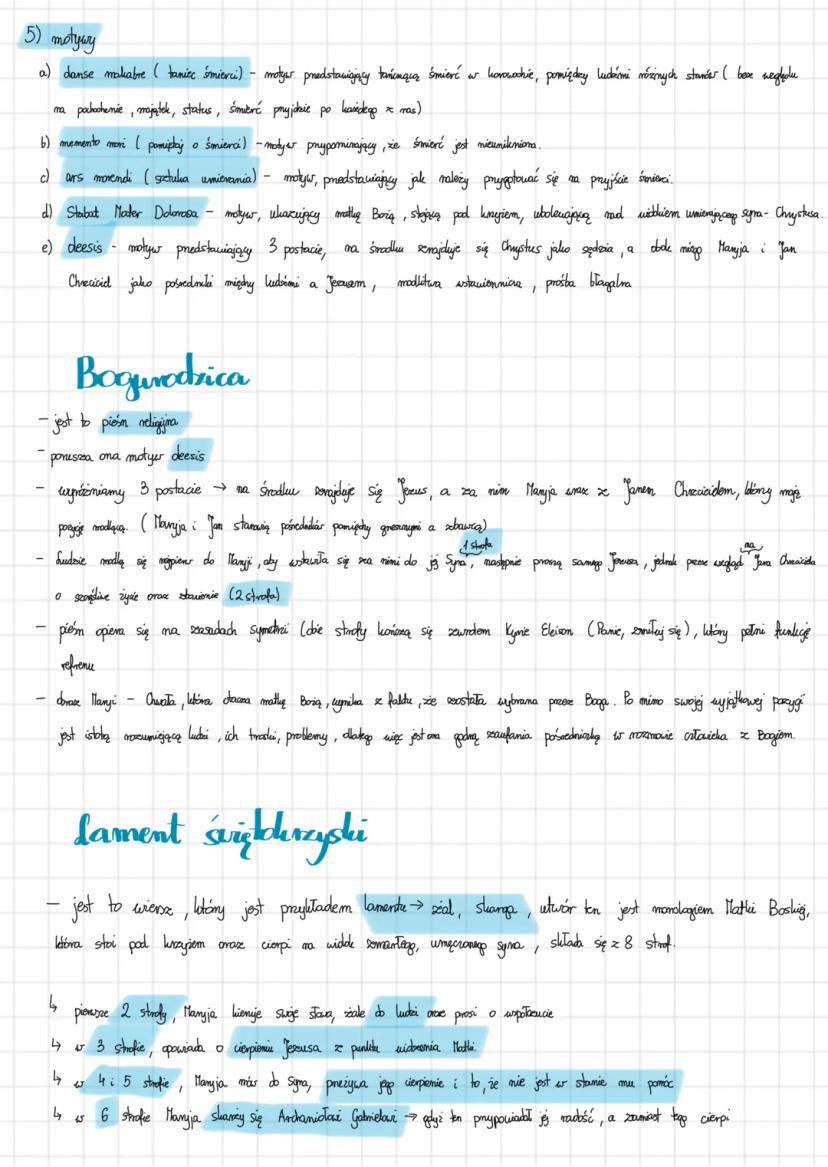 5) motywy
a) danse makabre ( taniec śmierci) - motyw przedstawiający tańczącą śmierć w korowodzie, pomiędzy ludźmi różnych stanów ( bez względu
na pochodzenie, majątek, status, śmierć przyjdzie po każdego z nas)
b) memento mori ( pamiętaj o śmierci) - motyw przypominający, że śmierć jest nieunikniona.
c) ars moriendi ( sztuka umierania) - motyw, przedstawiający jak należy przygotować się na przyjście śmierci.
d) Stabat Mater Dolorosa - motyw, ukazujący matkę Bożą, stojącą pod krzyżem, ubolewającą nad widokiem umierającego syna - Chrystusa.
e) deesis - motyw przedstawiający 3 postacie, na środku znajduje się Chrystus jako sędzia, a obok niego Maryja i Jan
Chrzciciel jako pośredniki między ludźmi a Jezusem, modlitwa wstawiennicza, prośba błagalna
Bogurodzica
- jest to pieśń religijna
- porusza ona motyw deesis
- wyróżniamy 3 postacie → na środku znajduje się Jezus, a za nim Maryja wraz z Janem Chrzcicielem, którzy mają
pozycję modlącą. ( Maryja i Jan stanowią pośredników pomiędzy grzesznymi a zbawcą)
1 strofa
- Ludzie modlą się najpierw do Maryji, aby wstawiła się za nimi do jej Syna, następnie proszą samego Jezusa, jednak przez wzgląd na Jana Chrzciciela
o szczęśliwe życie oraz zbawienie (2 strofa)
- pieśń opiera się na zasadach symetrii (obie strofy kończą się zwrotem Kyrie Eleison (Panie, zmiłuj się), który pełni funkcję
refrenu
- obraz Maryi - Chwała, która otacza matkę Bożą, wynika z faktu, że została wybrana przez Boga. Po mimo swojej wyjątkowej pozycji
jest istotą rozumiejącą ludzi, ich troski, problemy, dlatego więc jest ona godną zaufania pośredniczką w rozmowie człowieka z Bogiem.
Lament świętokrzyski
- jest to wiersz, który jest przykładem lamentu → żal, skarga, utwór ten jest monologiem Matki Boskiej,
która stoi pod krzyżem oraz cierpi na widok zmarłego, umęczonego syna, składa się z 8 strof.
↳ pierwsze 2 strofy, Maryja kieruje swoje słowa, żale do ludzi oraz prosi o współczucie
↳ w 3 strofie, opowiada o cierpieniu Jezusa z punktu widzenia Matki.
↳ w 4 i 5 strofie, Maryja mówi do Syna, przeżywa jego cierpienie i to, że nie jest w stanie mu pomóc
↳ w 6 strofie Maryja skarży się Archaniołowi Gabrielowi → gdyż ten przypowiadał jej radość, a zamiast tego cierpi